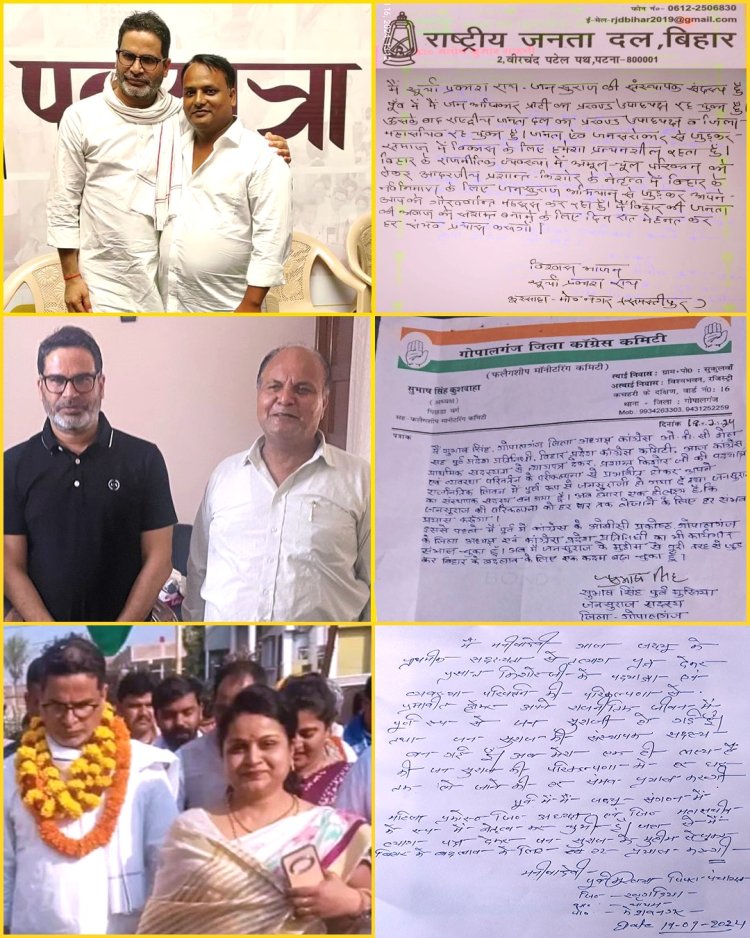 पदयात्रा
फोन नं०- 0612-2506830
ई-मेल-rjdbihar2019@gmail.com
राष्ट्रीय जनता दल, बिहार
2, वीरचंद पटेल पथ, पटना-800001
मैं सूर्या प्रकाश राय - जन सुराज की संस्थापक सदस्य
पूर्व में मैं जन अधिकार पार्टी का प्रखण्ड उपाध्यक्ष रह चुका
उसके बाद राष्ट्रीय जनता दल का प्रखण्ड उपाध्यक्ष व जिला-
महासचिव रह चुका हूँ। जनता एवं जनसरोकार से जुड़कर
समाज में विकास के लिए हमेशा प्रयत्नशील रहता हूँ।
बिहार के राजनीतिक व्यवस्था में आमूल-चूल परिवर्तन को
लेकर आदरणीय प्रशान्त-किशोर के नेतृत्व में बिहार के
नवनिर्माण के लिए जनसुराज अभियान से जुड़कर अपने-
आपको गौरवान्वित महसूस कर रहा हूँ। मैं बिहार की जनता
की आवाज को सशक्त बनाने के लिए दिन रात मेहनत कर
हर संभव प्रयास करूंगा।
विश्वास भाजन
सूर्या प्रकाश राय
गोपालगंज जिला कांग्रेस कमिटी
(फ्लैगशीप मॉनीटरिंग कमिटी)
सुभाष सिंह कुशवाहा
(अध्यक्ष)
पिछड़ा वर्ग
सह- फ्लैगशीप मॉनिटरिंग कमिटी
स्थाई निवास : ग्राम+पो० : सुकुलवाँ
अस्थाई निवास : विश्वभवन, रजिस्ट्री
कचहरी के दक्षिण, वार्ड नं० : 16
थाना - जिला : गोपालगंज
Mob: 9934263303, 9431252259
पत्रांक
दिनांक 18.2.24
मैं सुभाष सिंह, गोपालगंज जिला अध्यक्ष कांग्रेस ओ.बी.सी
सह पूर्व प्रदेश प्रतिनिधी, बिहार प्रदेश कांग्रेस कमिटी, आज कांग्रेस
प्राथमिक सदस्यता से त्यागपत्र देकर, प्रशान्त किशोर जी की पदयात्रा
एवं व्यवस्था परिवर्तन की परिकल्पना से प्रभावित होकर अपने
राजनीतिक जीवन में पूर्ण रूप से जनसुराजी हो गया हूँ तथा जनसुराज
का संस्थापक सदस्य बन गया हूँ। अब हमारा एक ही लक्ष्य है, कि
जनसुराज की परिकल्पना को हर घर तक ले जाने के लिए हर संभव
प्रयास करूँगा।
इससे पहले मैं पूर्व में कांग्रेस के ओबीसी प्रकोष्ठ गोपालगंज
के जिला अध्यक्ष एवं कांग्रेस प्रदेश प्रतिनिधि का भी कार्यभार
संभाल चुका हूँ। अब मैं जनसुराज के मुहीम से पूरी तरह से जुड़
कर बिहार के बदलाव के लिए एक कदम बढ़ा चुका हूँ।
सुभाष सिंह पूर्व मुखिया
जनसुराज सदस्य
जिला - गोपालगंज
मैं मनीषा देवी आज जदयू के
प्राथमिक सदस्यता से त्याग पत्र देकर
प्रशान्त किशोर जी के पदयात्रा एवं
व्यवस्था परिवर्तन की परिकल्पना से
प्रभावित होकर अपने राजनीतिक जीवन में-
पूर्ण रूप से जन सुराजी हो गई हूँ
तथा जन सुराज की संस्थापक सदस्य
बन गई हूँ अब मेरा एक ही लक्ष्य है
की जन सुराज की परिकल्पना को हर घर
तक ले जाने की हर संभव प्रयास करूंगी
पूर्व में मैं जदयू संगठन में
महिला प्रकोष्ठ जिला अध्यक्ष एवं जिला महासचिव
के रूप में नेतृत्व कर चुकी हूँ।
त्याग पत्र देकर जन सुराज के मुहीम से जुड़कर
बिहार के बदलाव के लिए हर प्रयास करूंगी
मनीषा देवी
Date 19-09-2024